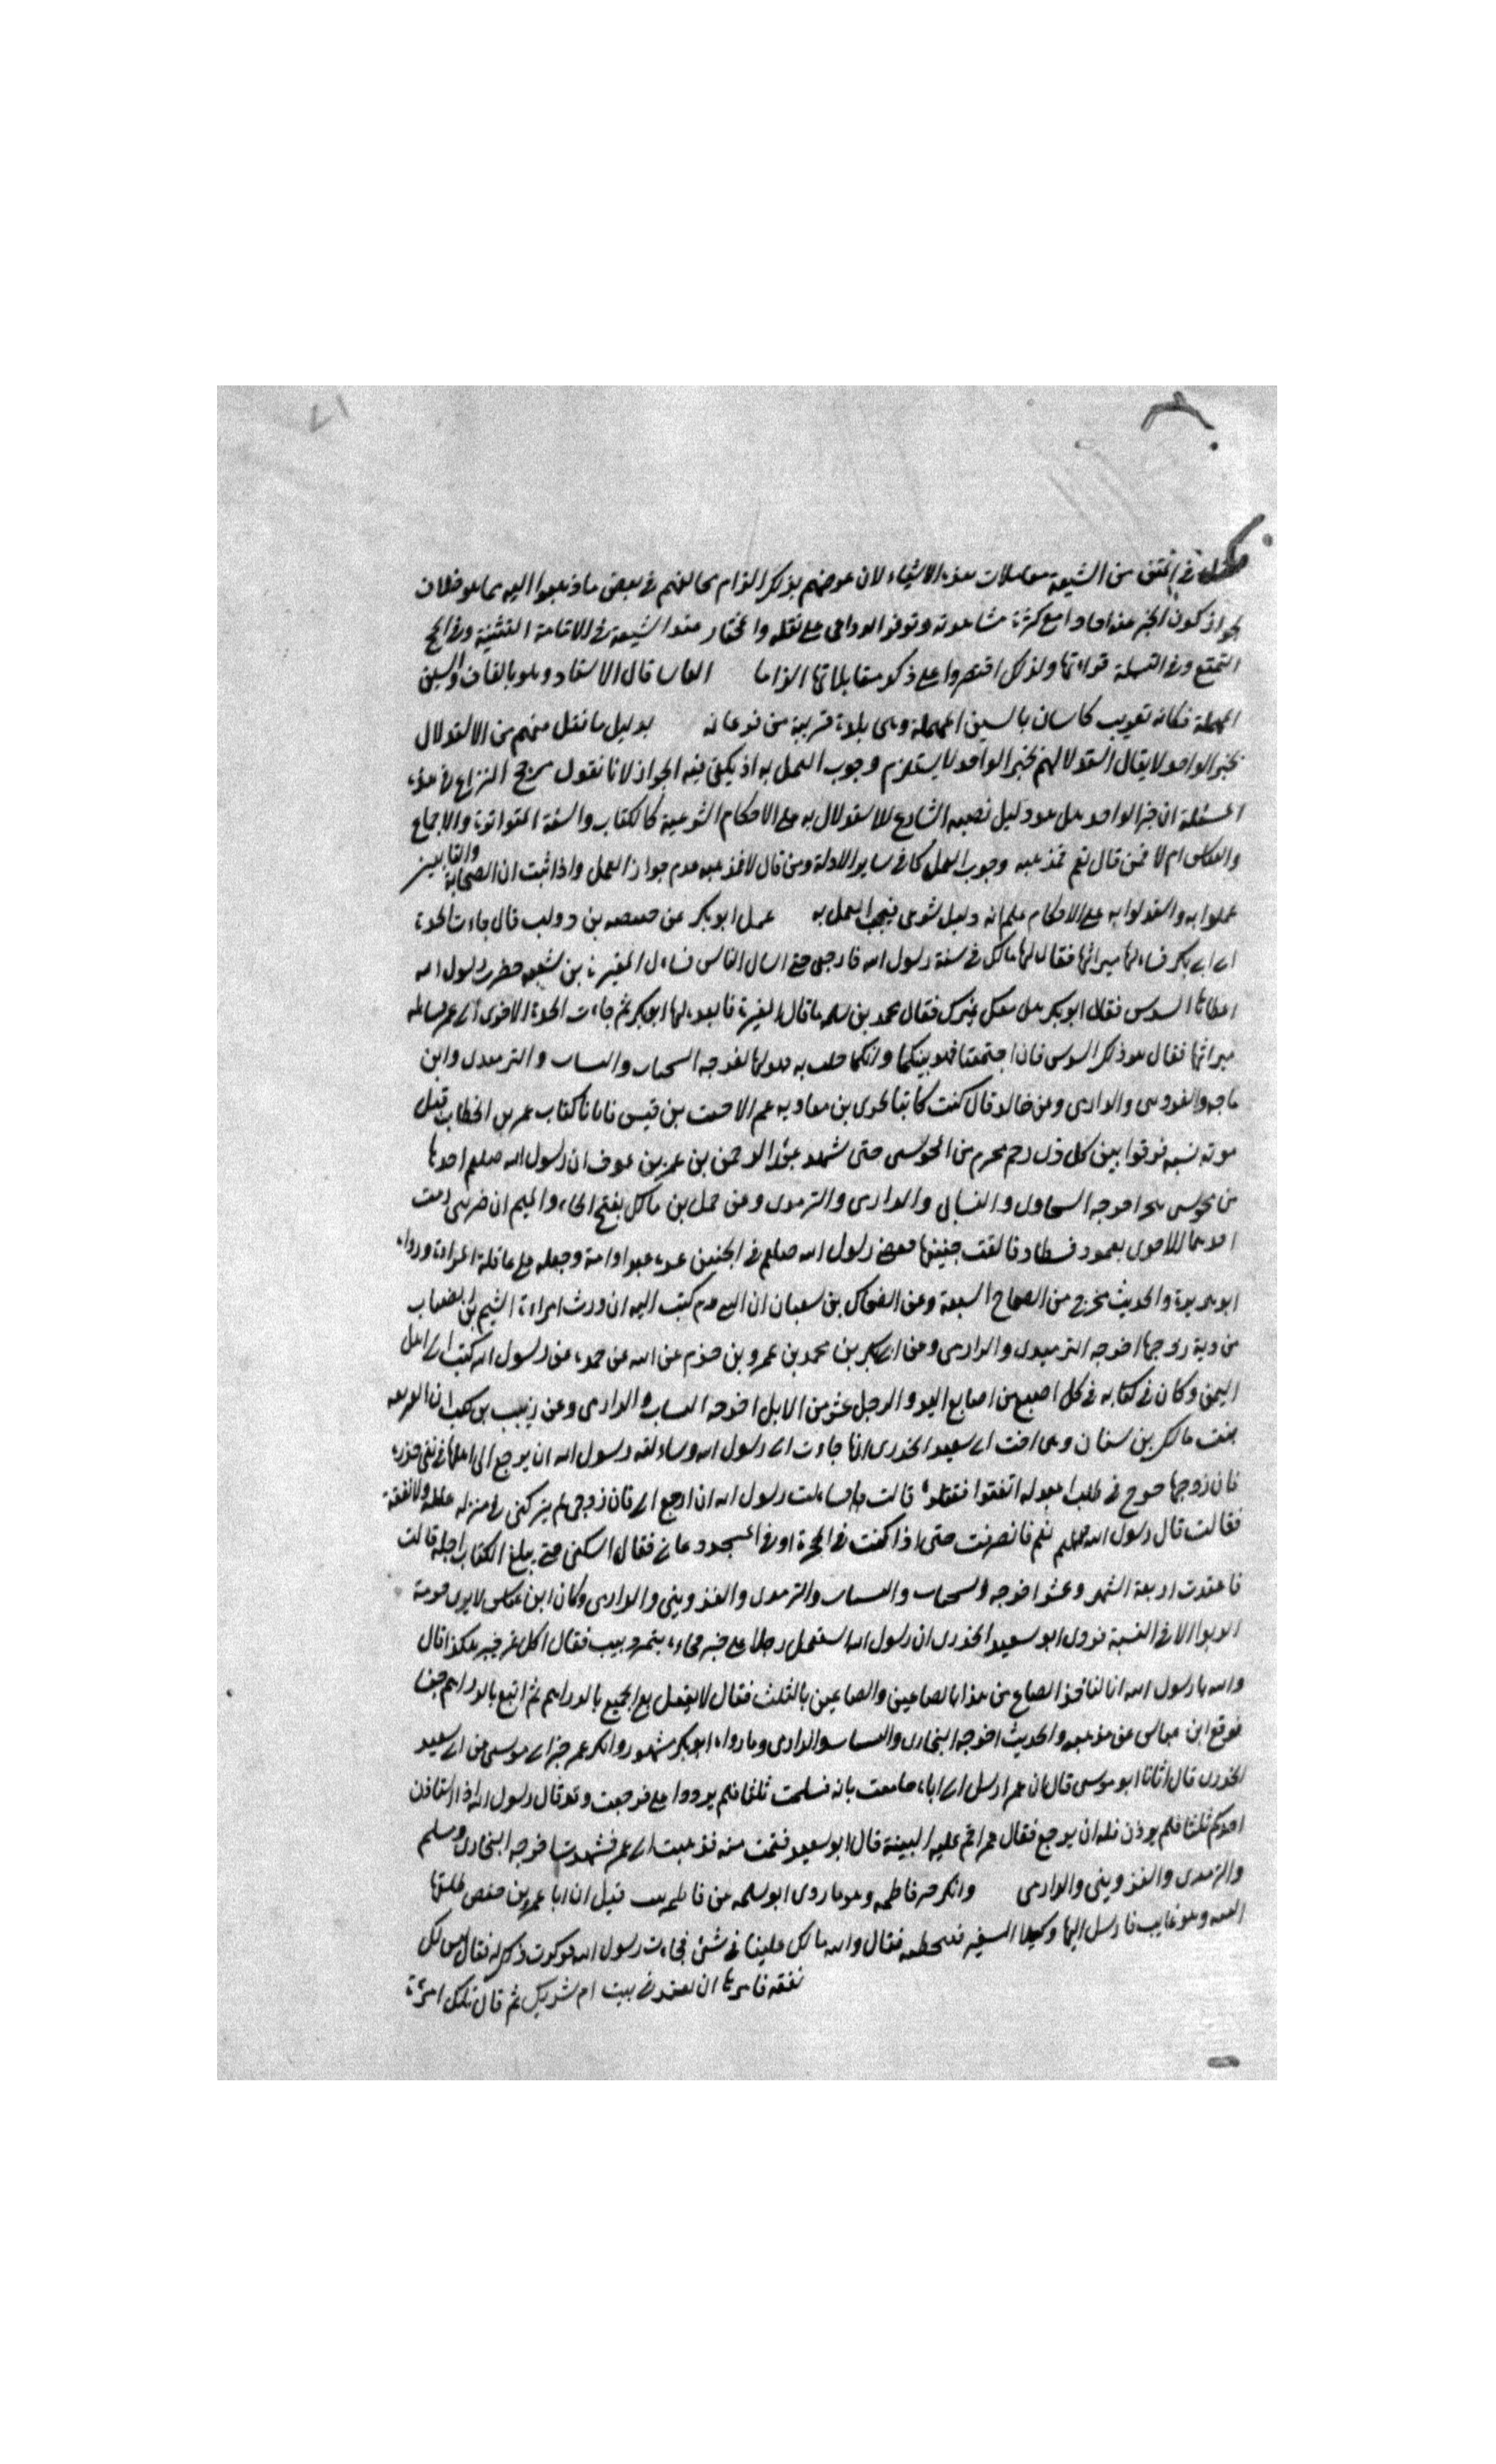 في المتن من الشيعة مقابلات هذه الاشياء لان غرضهم بذلك الزام مخالفهم في بعض ما ذهبوا اليه مما هو خلاف
الجواز كون الخبر عنه احادا مع كثرة مشاهدته وتوفر الدواعي على نقله والمختار عند الشيعة في الاقامة التثنية وفي الحج
التمتع وفي التسمية قراءتها ولذلك اقتصروا على ذكر مقابلاتها الزاما قال الاستاد وهو بالقاف والسين
المهملة فكانه تعريب كاسان بالسين المهملة وهي بلدة قريبة من فرغانه بدليل ما نقل منهم من الاستدلال
بخبر الواحد لا يقال استدلالهم بخبر الواحد لا يستلزم وجوب العمل به اذ يكفي فيه الجواز لانا نقول مرجع النزاع في هذه
المسئلة ان خبر الواحد هل هو دليل نصبه الشارع للاستدلال به على الاحكام الشرعية كالكتاب والسنة المتواترة والاجماع
والقياس ام لا فمن قال نعم فمذهبه وجوب العمل كما في ساير الادلة ومن قال لا فمذهبه عدم جواز العمل واذا ثبت ان الصحابة والتابعين
عملوا به واستدلوا به على الاحكام علم انه دليل شرعي فيجب العمل به عمل ابو بكر عن قبيصه بن دويب قال جاءت الجدة
الى ابي بكر فساءلها ميراثها فقال لها مالك في سنة رسول الله فارجعي حتى اسال الناس فساءل المغيرة بن شعبه حضرت رسول الله
اعطاها السدس فقال ابو بكر هل معك غيرك فقال محمد بن سلمه ما قال المغيرة فانفده لها ابو بكر ثم جاءت الجدة الاخرى الى عمر فساءلته
ميراثها فقال هو ذلك السدس فان اجتمعتما فهو بينكما وايكما خلت به فهو لها اخرجه والترمدى وابن
ماجه والدارمى وعن خالد قال كنت كاتبا لجزى بن معاويه عم الاحنف بن قيس فاتانا كتاب عمر بن الخطاب قبل
موته بسنه فرقوا بين كل ذى رحم محرم من المجوسى حتى شهد عبد الرحمن بن عوف ان رسول الله صلعم اخذها
من مجوسى هجر اخرجه والدارمى والترمدى وعن حمل بن مالك بفتح الحاء والميم ان ضرتين رمت
احديهما الاخرى بعمود فسطاط فالقت جنينها فقضى رسول الله صلعم في الجنين غره عبدا وامة وجعله على عاقلة المراة ورواه
ابو هريرة والحديث مخرج من الصحاح السبعة وعن الضحاك بن سفيان ان النبي كتب اليه ان ورث امراءة اشيم بن الضباب
من دية زوجها اخرجه الترميدى والدارمى وعن ابي بكر بن محمد بن عمرو بن حزم عن ابيه عن جده عن رسول الله كتب الى اهل
اليمن وكان في كتابه في كل اصبع من اصابع اليد والرجل عشر من الابل اخرجه والدارمى وعن زينب بن كعب ان الفريعه
بنت مالك بن سنان وهي اخت ابي سعيد الخدرى انها جاءت الى رسول الله وساءلته رسول الله ان يرجع الى اهلها في بني خدره
فان زوجها خرج في طلب اعبد له اتفقوا فقتلوه قالت فساءلت رسول الله ان ارجع الى فان زوجي لم يتركني في منزله ولا نفقة
فقالت قال رسول الله صلعم نعم فانصرفت حتى اذا كنت في الحجرة او في المسجد دعاني فقال اسكني حتى يبلغ الكتاب اجله قالت
فاعتدت اربعة اشهر وعشرا اخرجه والترمدى والقزوينى والدارمى وكان ابن عباس لا يرى حرمة
الربوا الا في النسية فروى ابو سعيد الخدرى ان رسول الله استعمل رجلا على خيبر فجاءه بتمر جنيب فقال اكل تمر خيبر هكذا قال
والله يا رسول الله انا لناخذ الصاع من هذا بالصاعين والصاعين بالثلث فقال لا يفعل بع الجمع بالدراهم ثم ابتع بالدراهم جنيبا
فرجع ابن عباس عن مذهبه والحديث اخرجه البخارى والدارمى وما رواه ابو بكر مشهور وانكر عمر خبر ابي موسى عن ابي سعيد
الخدرى قال اتانا ابو موسى قال ان عمر ارسل الى بانه فسلمت ثلثا فلم يردوا على فرجعت وقد قال رسول الله اذا استاذن
احدكم ثلثا فلم يوذن فله ان يرجع فقال عمر اقم عليه البينة قال ابو سعيد فقمت معه فذهبت الى عمر فشهدت اخرجه البخارى ومسلم
والترمدى والقزوينى والدارمى وانكر خبر فاطمه وهو ما روى ابو سلمه عن فاطمه بنت قيس ان ابا عمرو بن حفص طلقها
البته وهو غايب فارسل اليها وكيله الشعير فسخطته فقال والله مالك علينا في شئ فجاءت رسول الله فذكرت ذلك له فقال ليس لك
نفقه فامرها ان تعتد في بيت ام شريك ثم قال تلك امرءة